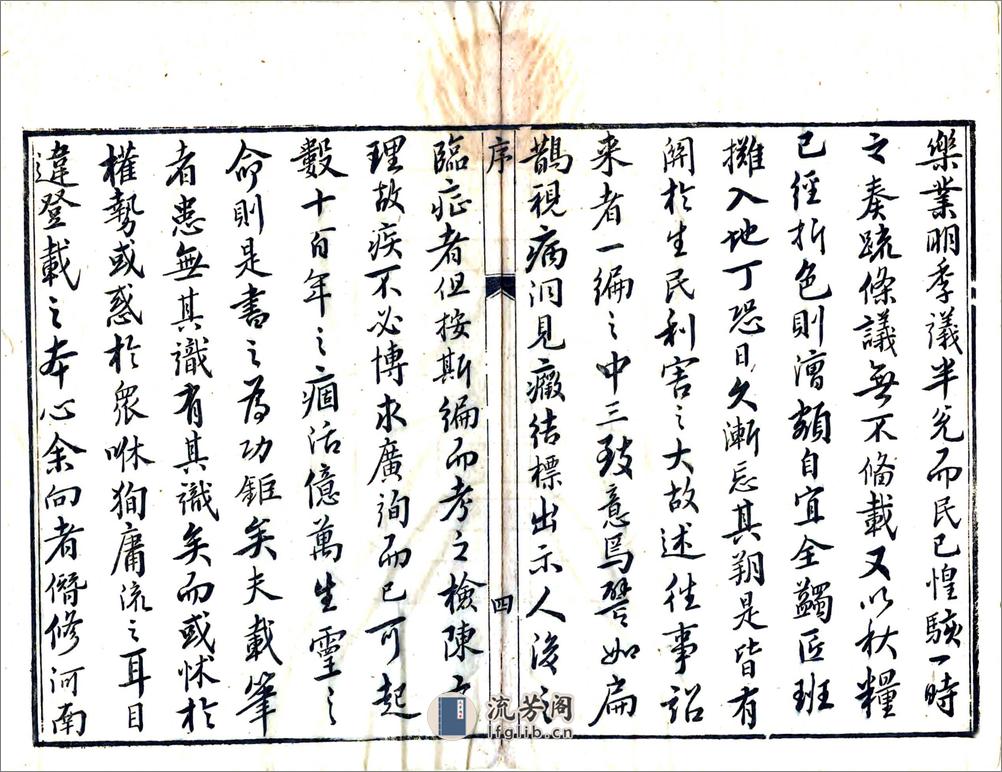 樂業明季議半免而民已惶駭一時
之奏疏條議無不俻載又以秋糧
已經折色則漕額自宜全蠲匠班
攤入地丁恐日久漸忘其朔是皆有
關於生民利害之大故述徃事詔
来者一編之中三致意焉譬如扁
鵲視病洞見癥结標出示人後之
序
四
臨症者但按斯編而考之檢陳方
理故疾不必博求廣詢而已可起
數十百年之痼活億萬生靈之
命則是書之為功鉅矣夫載筆
者患無其識有其識矣而或怵於
權勢或惑於眾咻狥庸流之耳目
違登載之本心余向者僭修河南
流芳阁
lfglib.cn